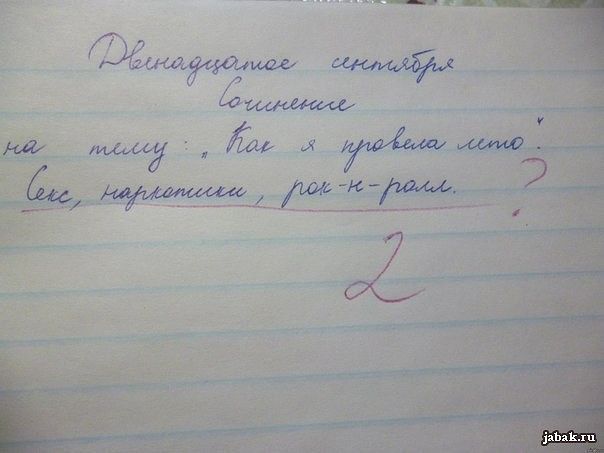 Двенадцатое сентября
Сочинение
на тему: „Как я провела лето".
Секс, наркотики, рок-н-ролл. ?
2
jabak.ru